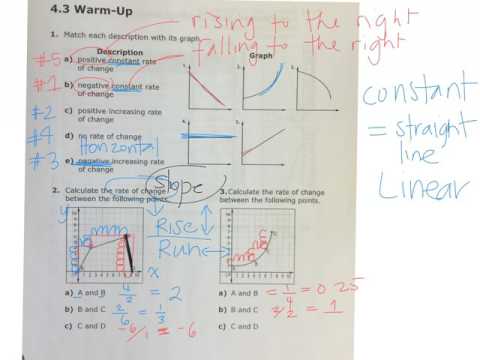 4.3 Warm-Up
rising to the right
falling to the right
1. Match each description with its graph.
Description
Graph
#5 a) positive constant rate of change
#1 b) negative constant rate of change
#2 c) positive increasing rate of change
#4 d) no rate of change
Horizontal
#3 e) negative increasing rate of change
1.
2.
3.
4.
5.
constant
= straight
line
Linear
slope
2. Calculate the rate of change between the following points.
Rise
Run
y
x
a) A and B 4/2 = 2
b) B and C 2/6 = 1/3
c) C and D -6/1 = -6
3. Calculate the rate of change between the following points.
a) A and B = 1/4 = 0.25
b) B and C 3/2 = 1
c) C and D